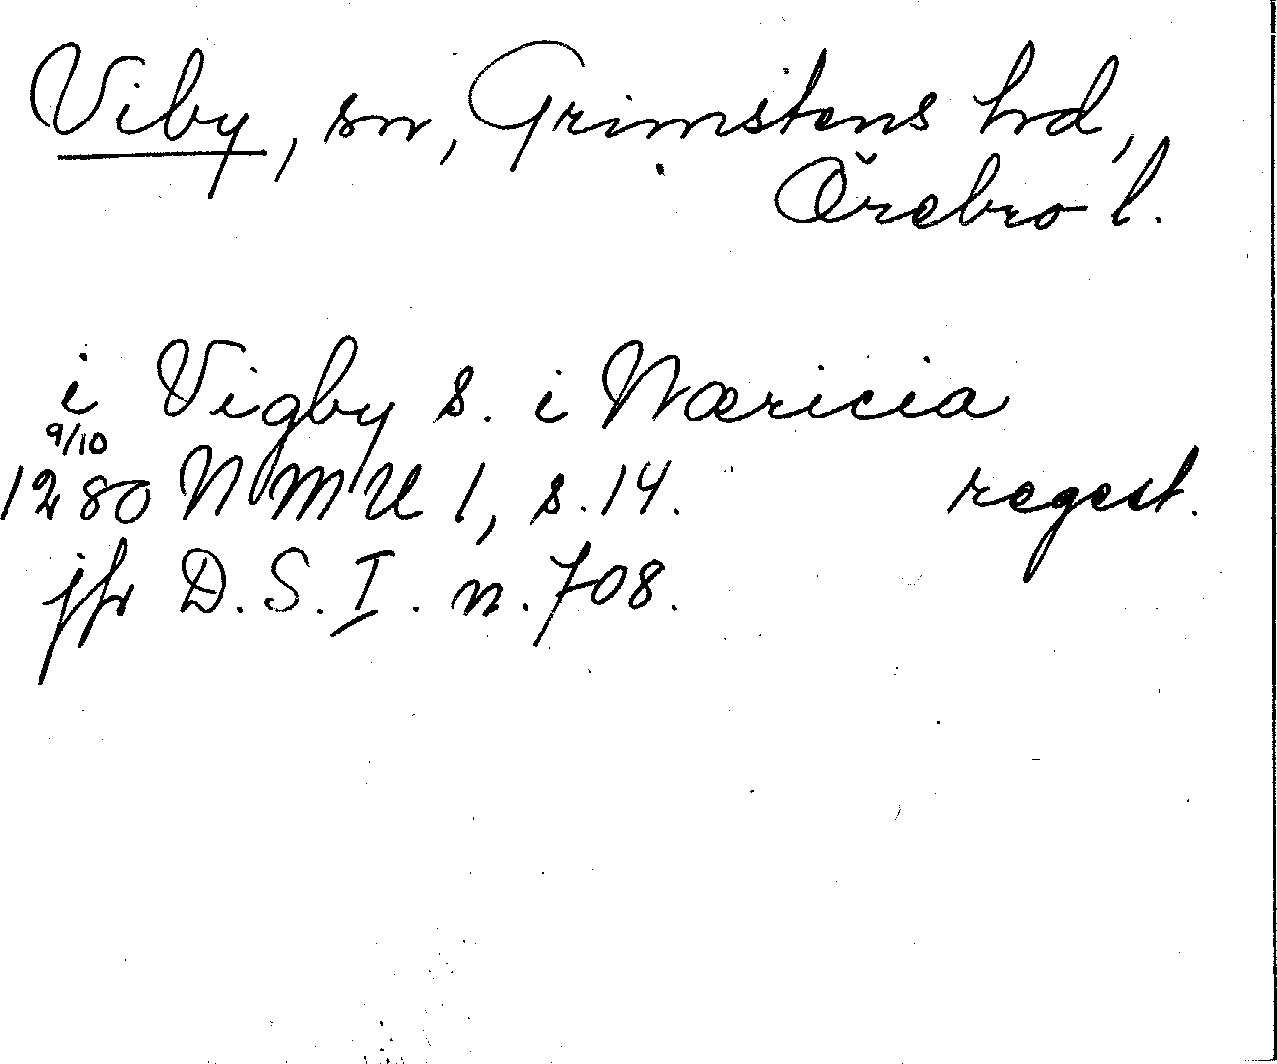 Viby, sn, Grimstens hd,
Örebro l.
i Vigby s. i Næricia
9/10
1280 NMU 1, s. 14. regest.
jfr D.S. I. n. 708.